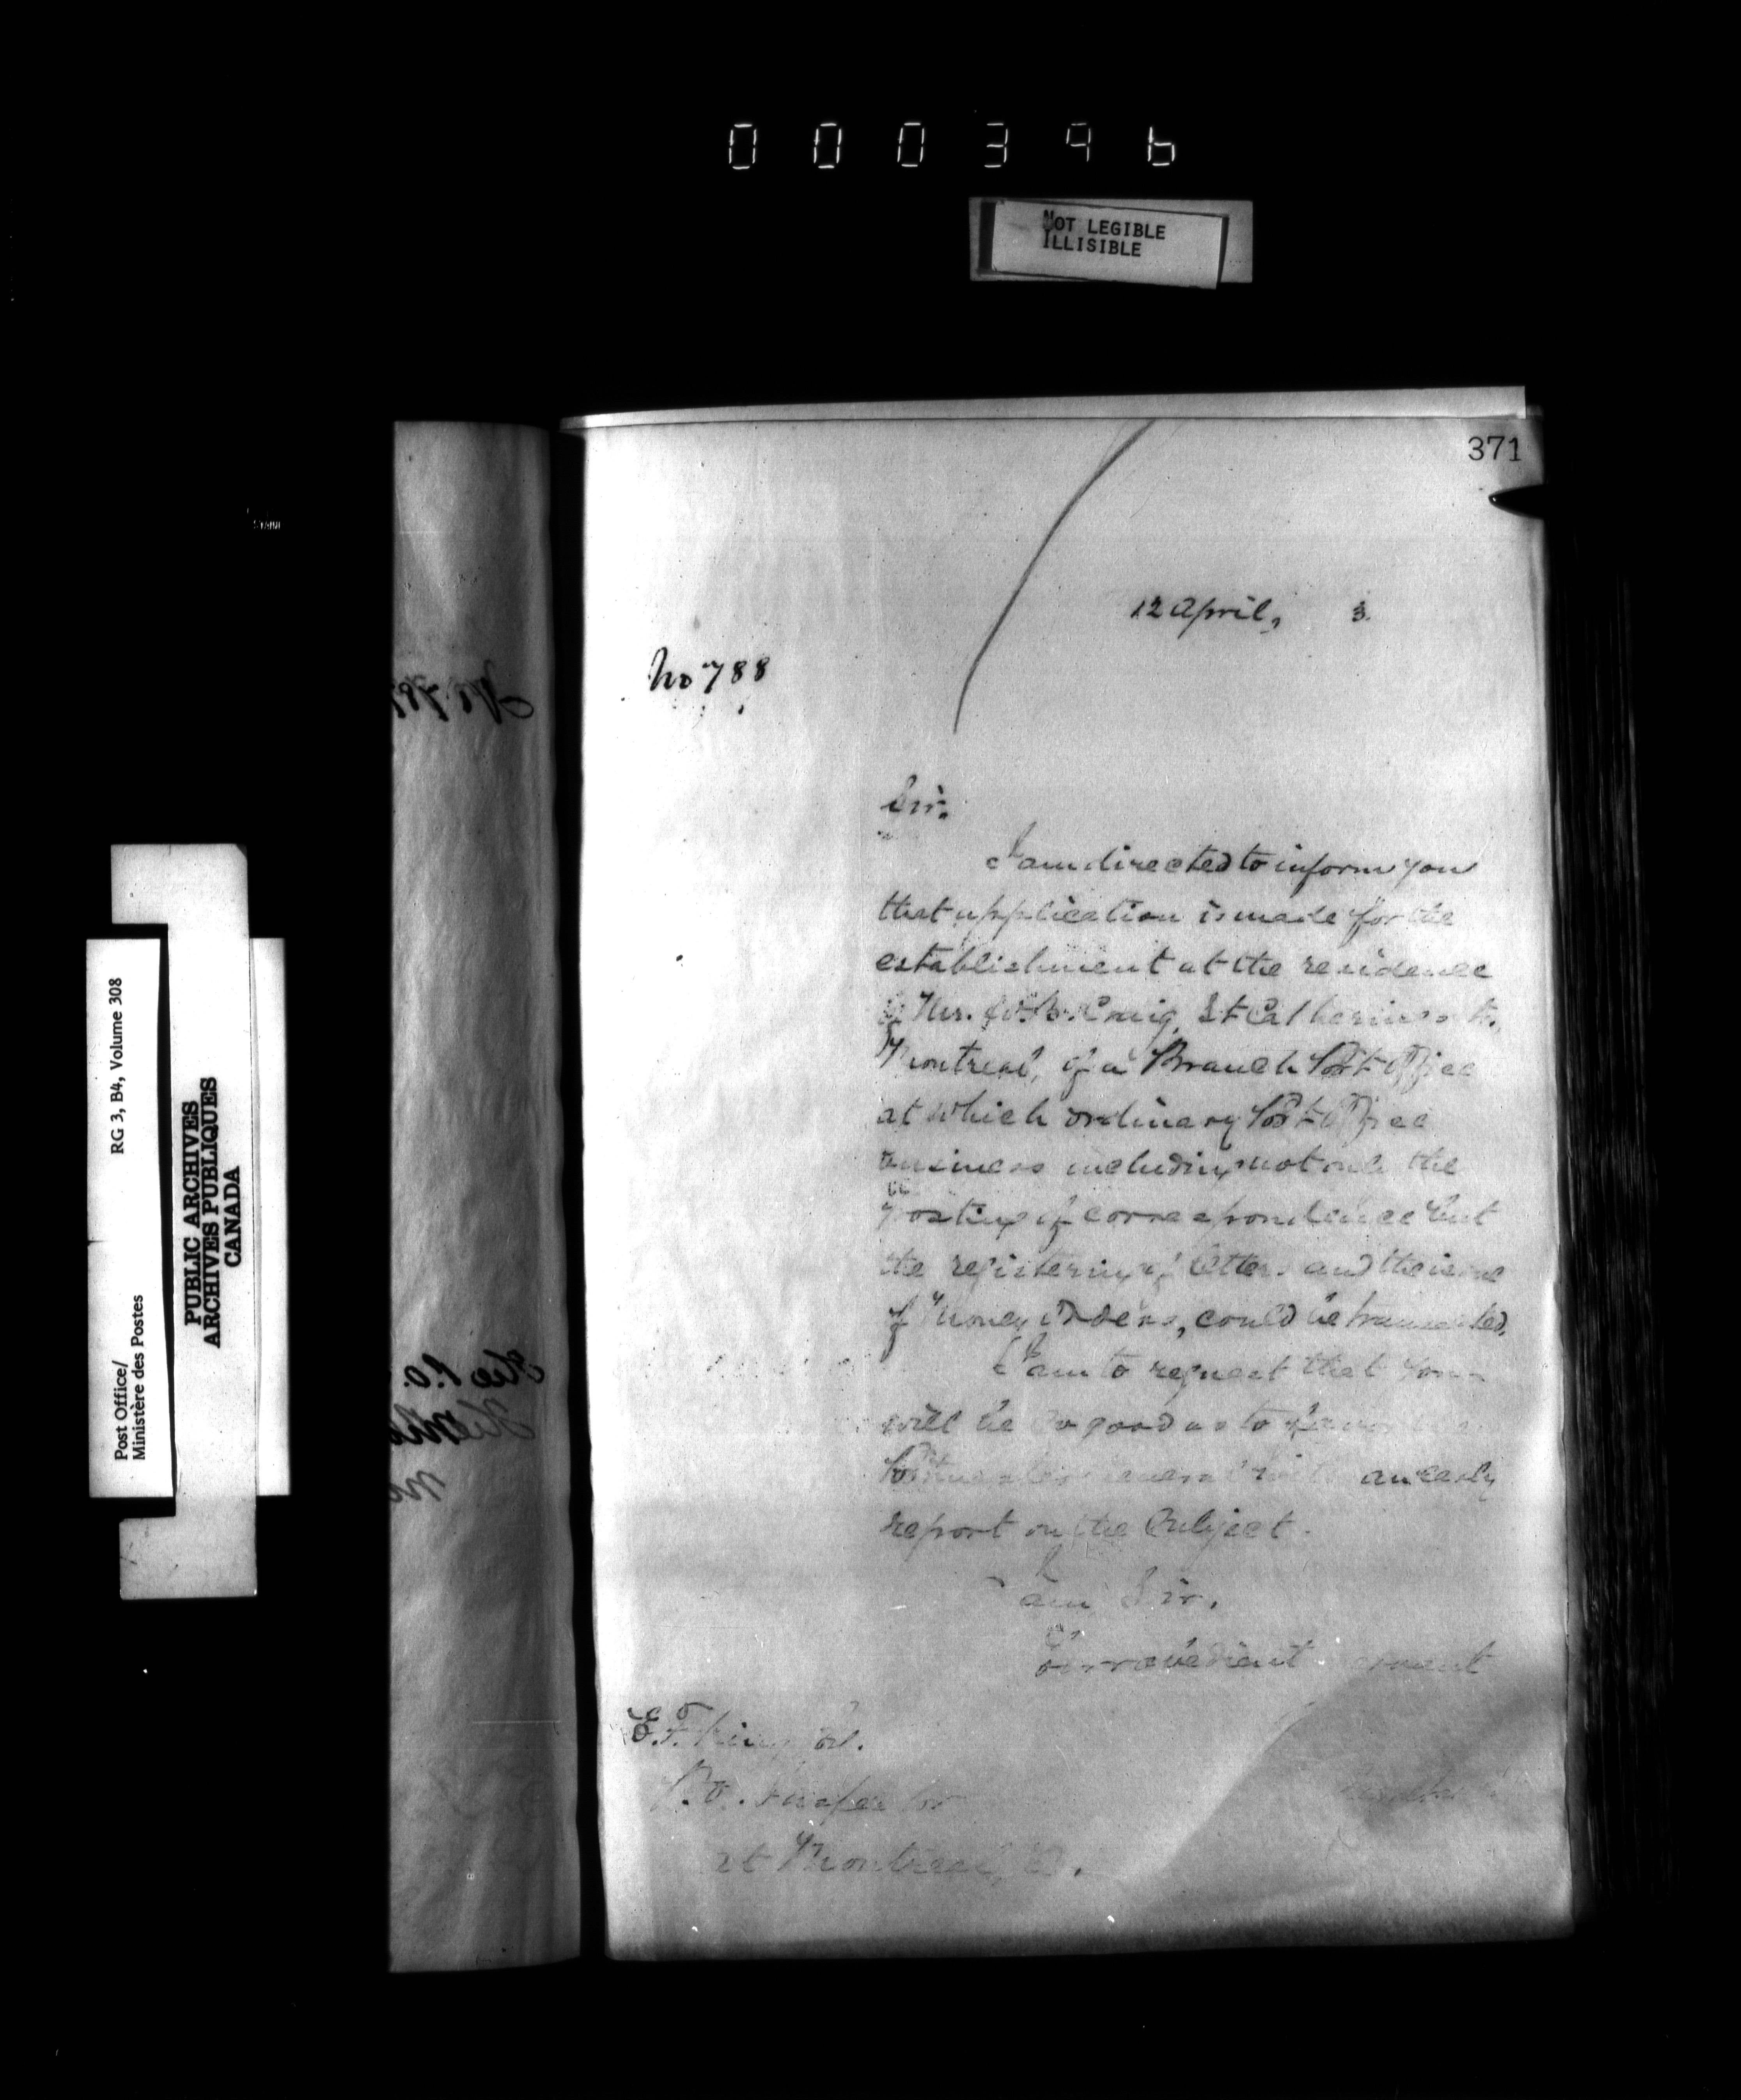 000396
NOT LEGIBLE
ILLISIBLE
371
12 April, 3.
No 788
Sir.
I am directed to inform you
that application is made for the
establishment at the residence
of Mr. Craig, St Catherine St.
Montreal, of a Branch Post Office
at which ordinary Post Office
business including not only the
posting of correspondence but
the registering of letters and the issue
of Money Orders, could be transacted.
I am to request that you
will be so good as to
Postmaster General with an early
report on the Subject.
I
am Sir,
Your obedient servant
E.F. King
P.O. Inspector
at Montreal, Q.
Post Office/
Ministère des Postes
RG 3, B4, Volume 308
PUBLIC ARCHIVES
ARCHIVES PUBLIQUES
CANADA